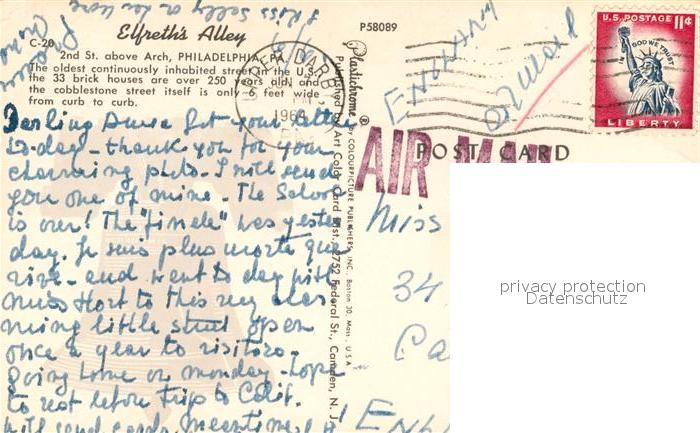 Elfreth's Alley
C-20
2nd St. above Arch, PHILADELPHIA, PA.
The oldest continuously inhabited street in the U.S.,
the 33 brick houses are over 250 years old, and
the cobblestone street itself is only 6 feet wide
from curb to curb.
P58089
UPPER DARBY
JUN
PM
1964
Plastichrome ® by COLOURPICTURE PUBLISHERS, INC. Boston 30, Mass., U.S.A.
Published by Art Color Card Dist., 2752 Federal St., Camden, N. J.
U.S. POSTAGE 11¢
IN GOD WE TRUST
LIBERTY
AIR MAIL
POST CARD
Darling Got your letter
to-day - thank you for your
charming photo. I will send
you one of mine. The
is over! The "finale" was yester
day. Je suis plus morte que
vive - and went to-day with
Miss to this very char
ming little street open
once a year to visitors.
Going home on monday - hope
to rest before trip to Calif.
Will send cards. Meantime
Miss
34
Ca
Engl
privacy protection
Datenschutz